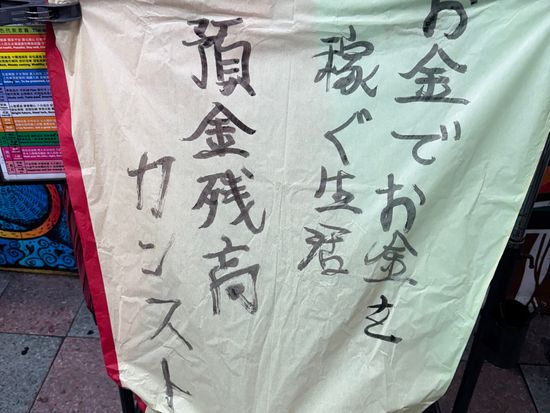 お金でお金を
稼ぐ生涯
預金残高
カンスト